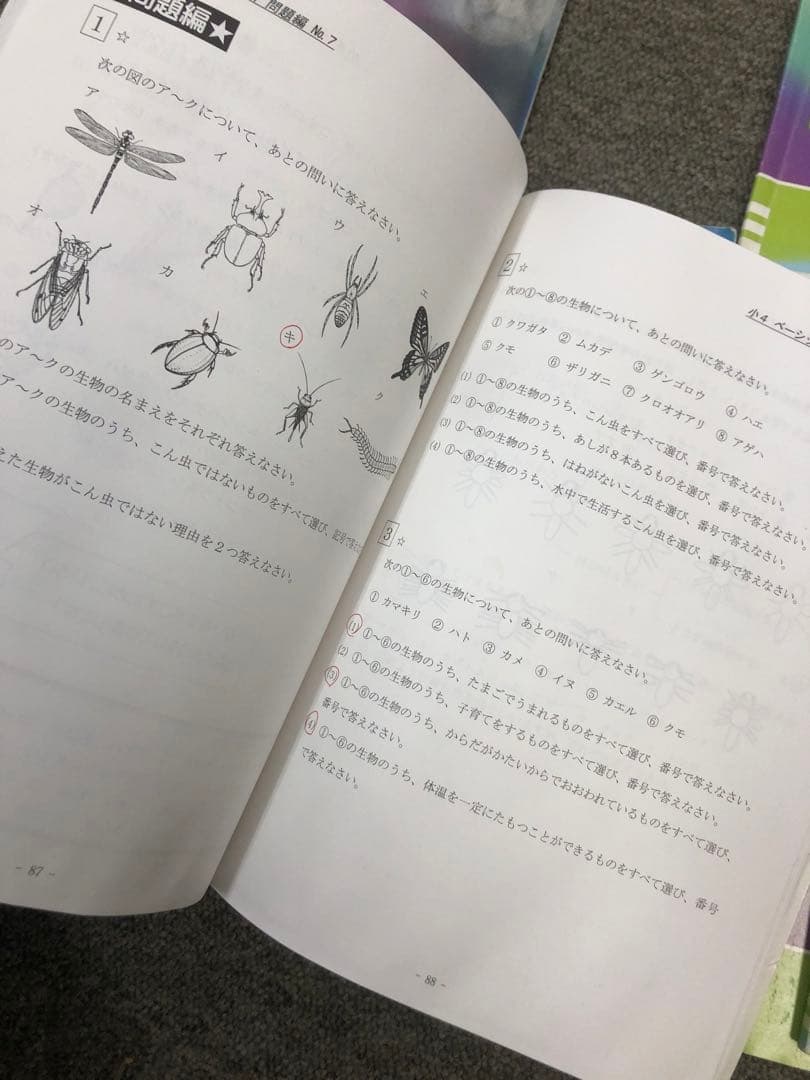 問題編★
問題編 No.7
1 ☆
次の図のア～クについて、あとの問いに答えなさい。
ア
イ
ウ
エ
オ
カ
キ
ク
のア～クの生物の名まえをそれぞれ答えなさい。
ア～クの生物のうち、こん虫ではないものをすべて選び、記号で答え
えた生物がこん虫ではない理由を2つ答えなさい。
- 87 -
小4 ベーシッ
2 ☆
次の①～⑧の生物について、あとの問いに答えなさい。
① クワガタ ② ムカデ ③ ゲンゴロウ ④ ハエ
⑤ クモ ⑥ ザリガニ ⑦ クロオオアリ ⑧ アゲハ
(1) ①～⑧の生物のうち、こん虫をすべて選び、番号で答えなさい。
(2) ①～⑧の生物のうち、あしが8本あるものを選び、番号で答えなさい。
(3) ①～⑧の生物のうち、はねがないこん虫を選び、番号で答えなさい。
(4) ①～⑧の生物のうち、水中で生活するこん虫を選び、番号で答えなさい。
3 ☆
次の①～⑥の生物について、あとの問いに答えなさい。
① カマキリ ② ハト ③ カメ ④ イヌ ⑤ カエル ⑥ クモ
(1) ①～⑥の生物のうち、たまごでうまれるものをすべて選び、番号で答えなさい。
(2) ①～⑥の生物のうち、子育てをするものをすべて選び、番号で答えなさい。
(3) ①～⑥の生物のうち、からだがかたいからでおおわれているものをすべて選び、
番号で答えなさい。
(4) ①～⑥の生物のうち、体温を一定にたもつことができるものをすべて選び、番号
で答えなさい。
- 88 -